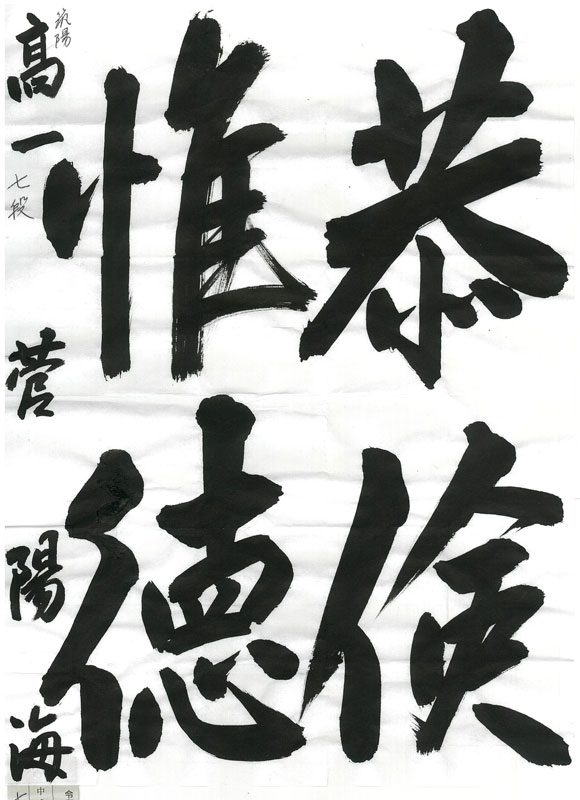 恭倹
惟徳
筑陽
高一
七段
菅陽海